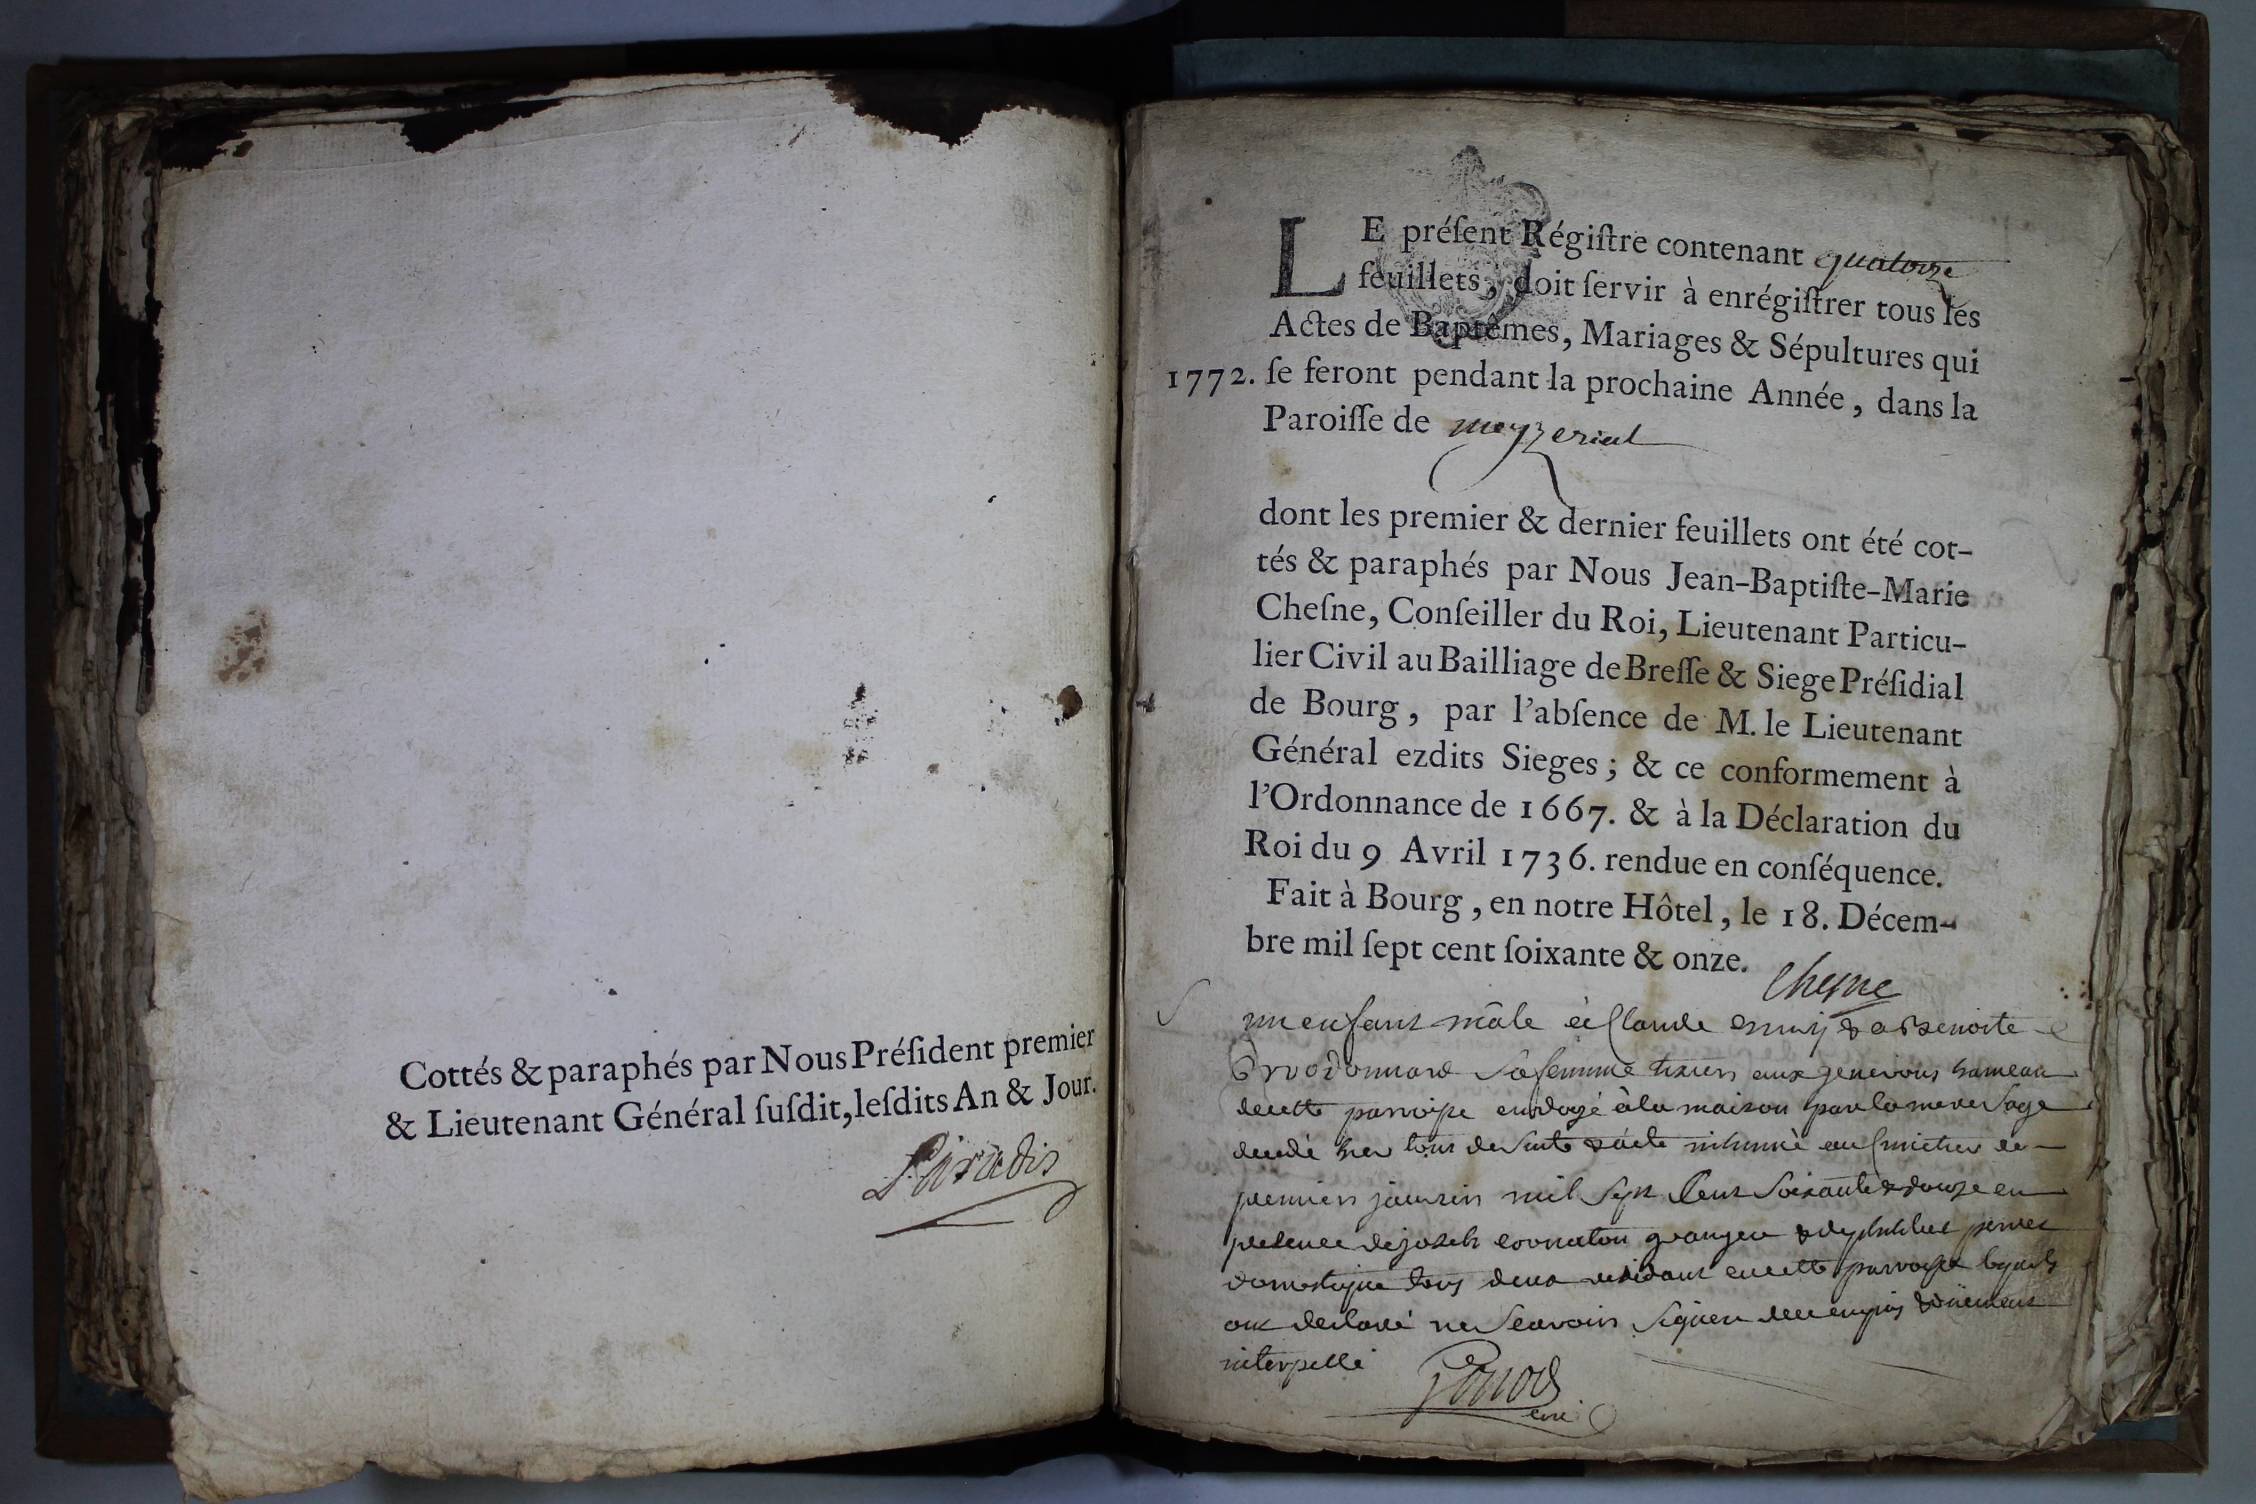 Cottés & paraphés par Nous Préſident premier
& Lieutenant Général ſuſdit, leſdits An & Jour.
Paradis
LE préſent Régiſtre contenant quatorze
feuillets, doit ſervir à enrégiſtrer tous les
Actes de Baptêmes, Mariages & Sépultures qui
1772. ſe feront pendant la prochaine Année, dans la
Paroiſſe de meyzeriat
dont les premier & dernier feuillets ont été cot-
tés & paraphés par Nous Jean-Baptiſte-Marie
Cheſne, Conſeiller du Roi, Lieutenant Particu-
lier Civil au Bailliage de Breſſe & Siege Préſidial
de Bourg, par l'abſence de M. le Lieutenant
Général ezdits Sieges; & ce conformement à
l'Ordonnance de 1667. & à la Déclaration du
Roi du 9 Avril 1736. rendue en conſéquence.
Fait à Bourg, en notre Hôtel, le 18. Décem-
bre mil ſept cent ſoixante & onze.
Chesne
un enfant mâle à Claude & a Benoite
sa femme hameau
de cette paroisse ondoyé à la maison par la mere sage
inhumé au
premier janvier mil sept Cent soixante & douze en
presence de joseph granger &
domestique tous deux residant en cette paroisse
ont declaré ne scavoir signer de ce enquis &
interpellé
curé